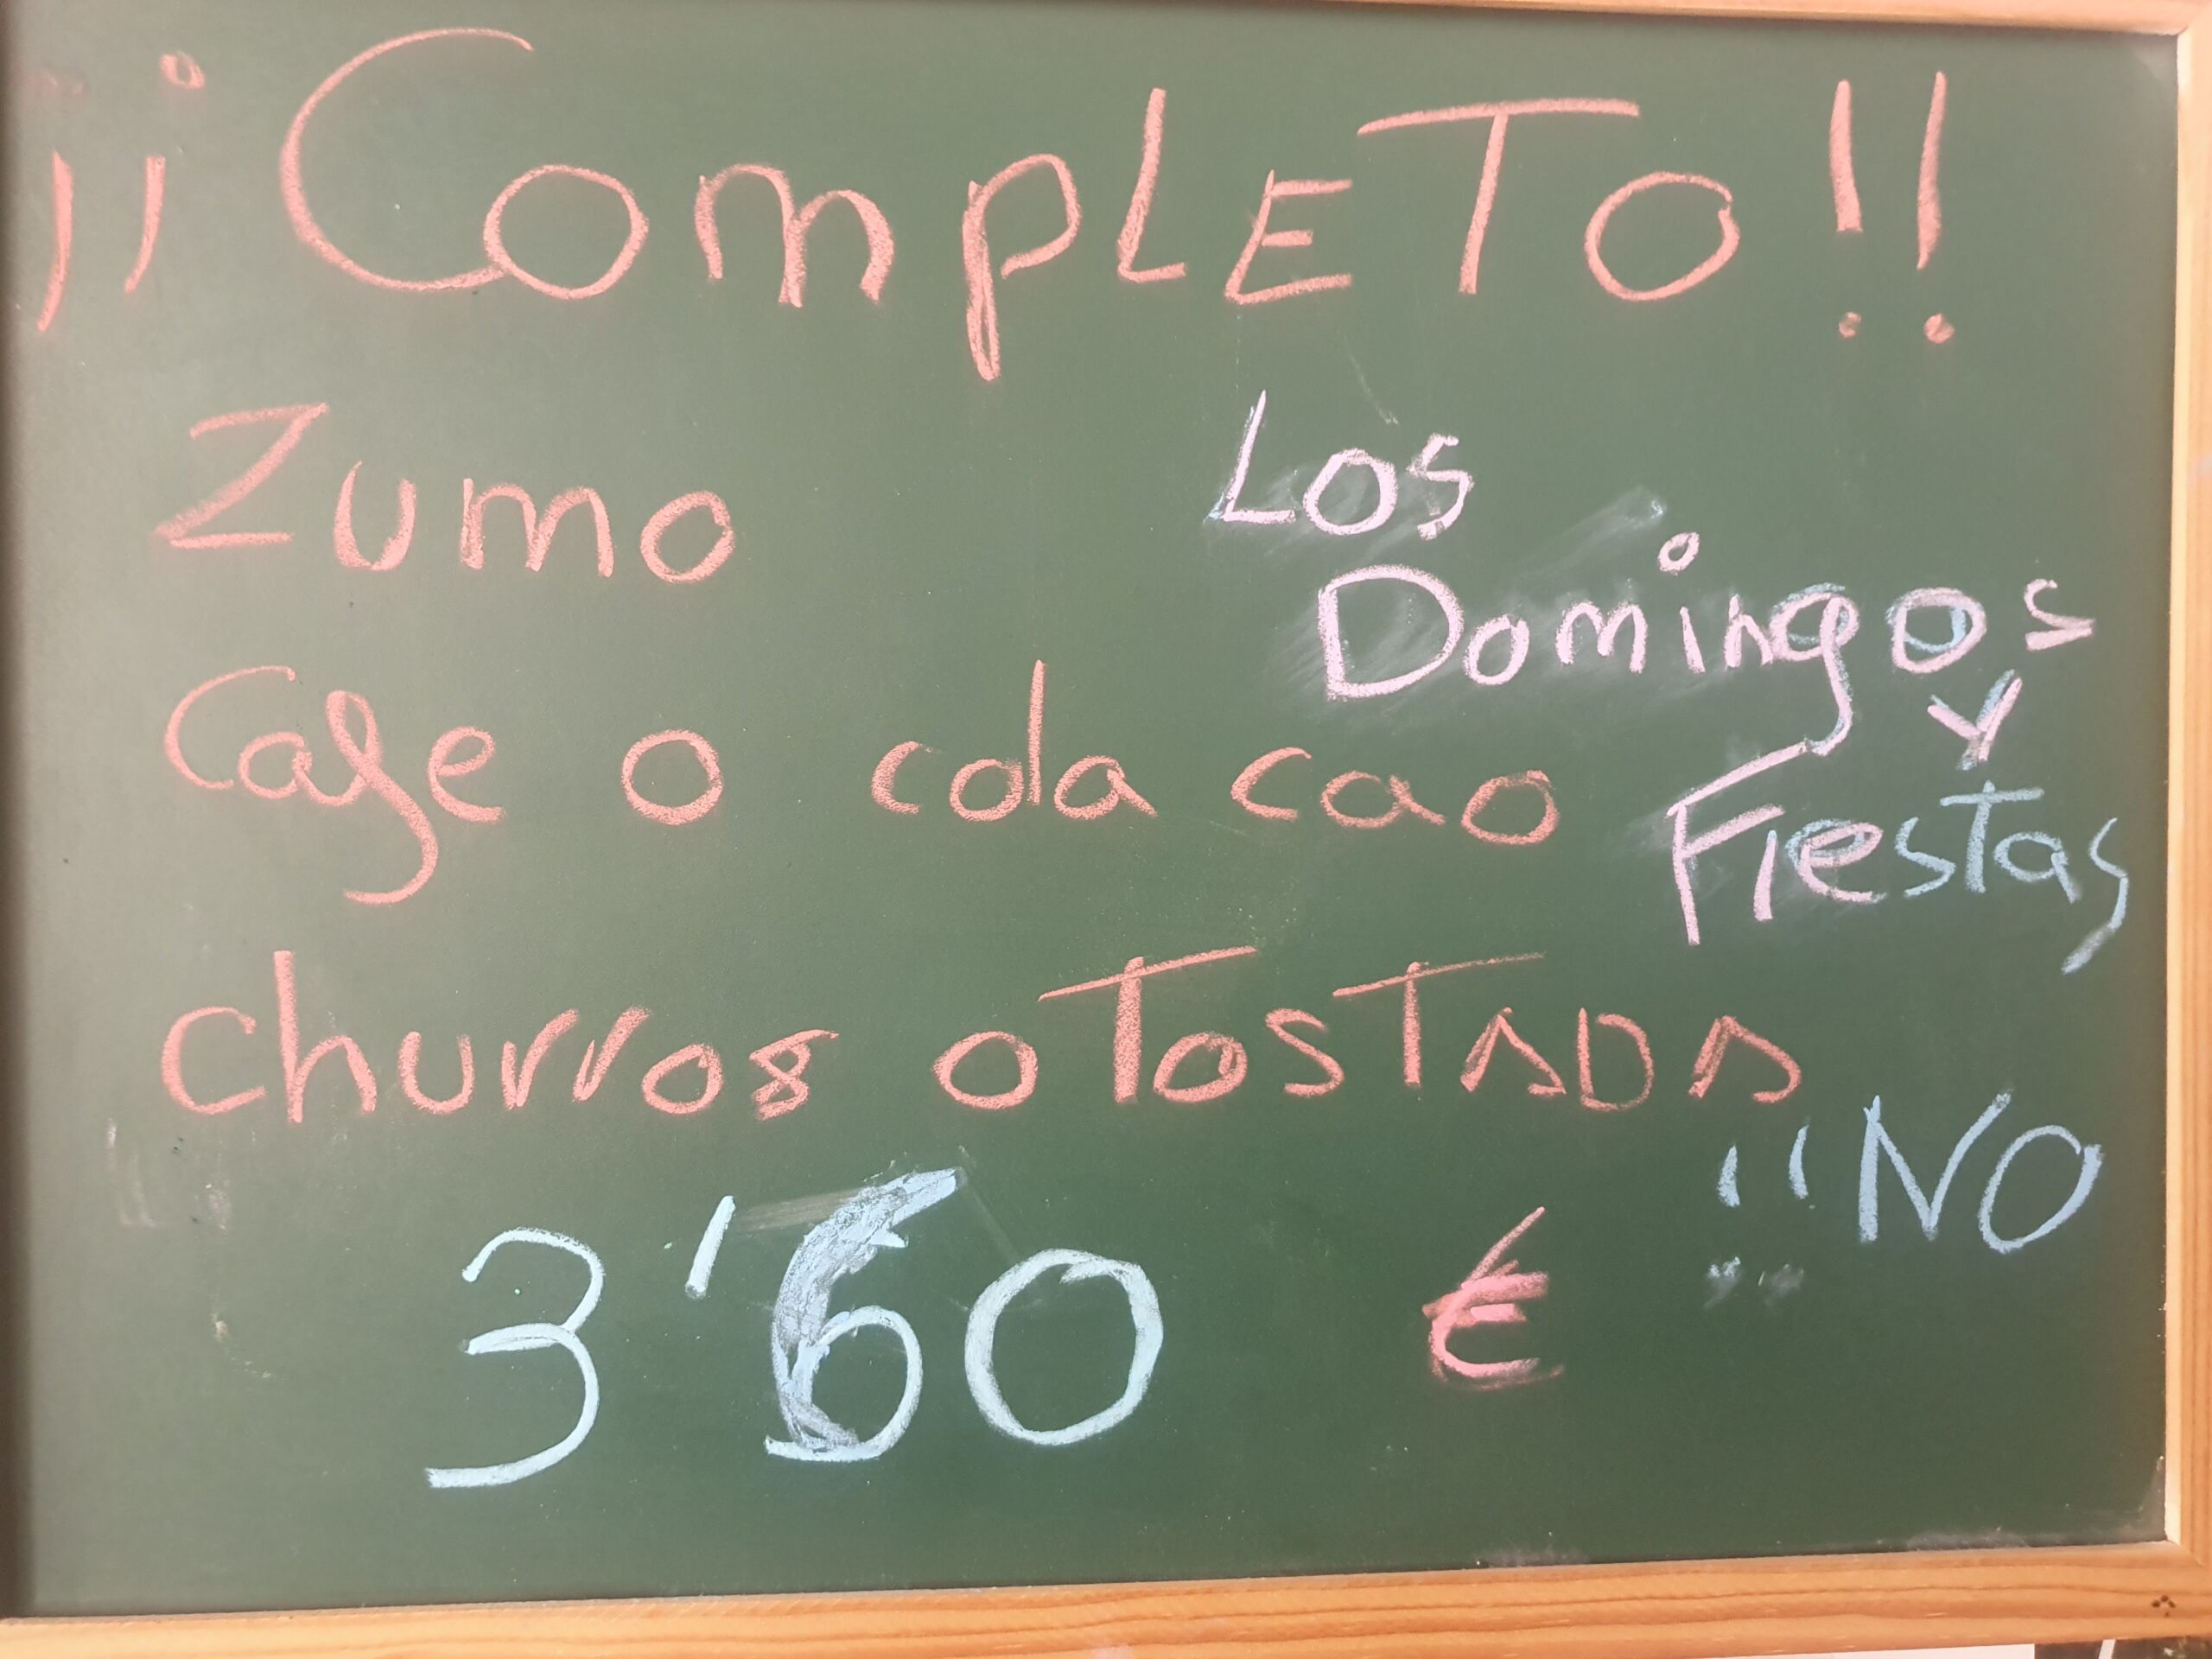 ¡¡COmpLETO!!
Zumo
Cafe o cola cao
churros o TosTADA
3'60 €
Los
Domingos
Y
Fiestas
!!NO